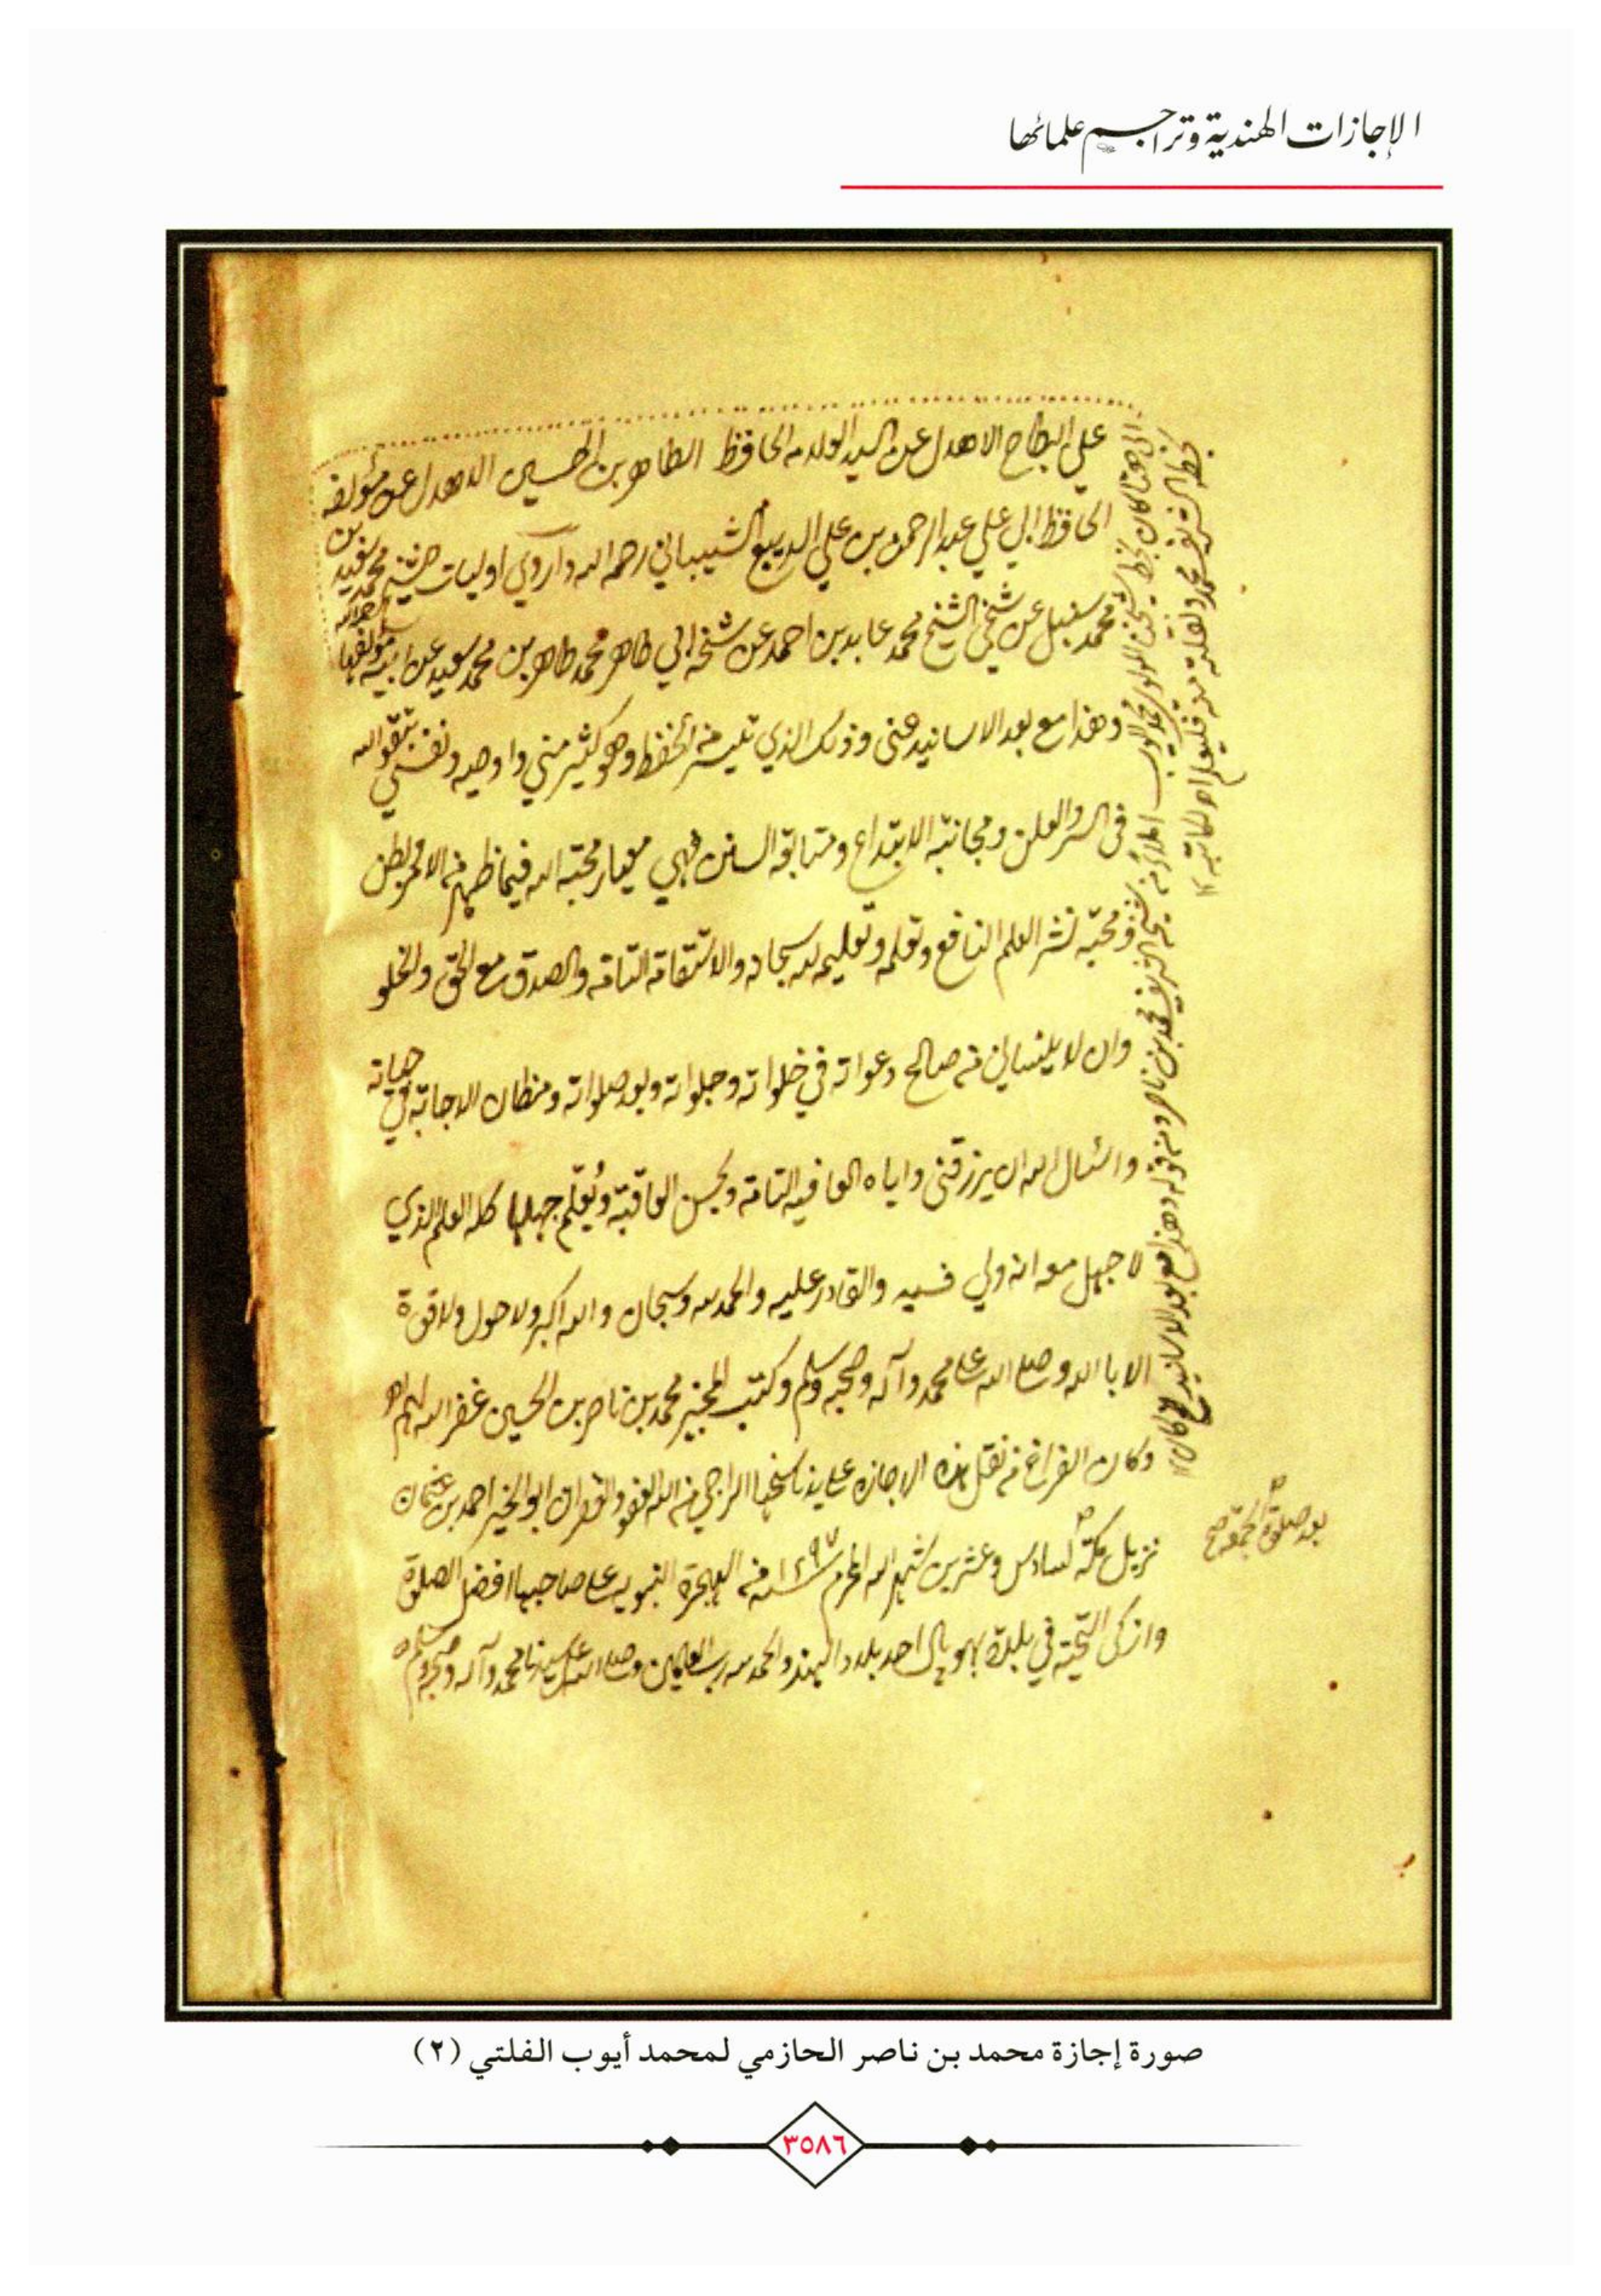 الإجازات الهندية وتراجم علمائها
علي البطاح الاهدل عن السيد الولد مه الحافظ الطاهر بن الحسين الاهدل عن مؤلفه
الحافظ ابي علي عبد الرحمن بن علي الديبع الشيباني رحمه الله وآروي اوليات شيخ محمد سعيد بن
محمد سنبل عن شيخي الشيخ محمد عابد بن احمد عن شيخه ابي طاهر محمد طاهر بن محمد سعيد عن ابيه مؤلفها
وهذا مع بعد الاسانيد عني وذلك الذي تيسر من الحفظ وهو كثير مني واوصيه ونفسي بتقوى الله
في السر والعلن ومجانبة الابتداع ومتابعة السنن فهي معيار محبة الله فيما ظهر من الامر وبطن
ومحبة نشر العلم النافع وتعلمه وتعليمه لله سبحانه والاستقامة التامة والصدق مع الحق والخلو
وان لا ينساني من صالح دعواته في خلواته وجلواته وبعد صلواته ومظان الاجابة في حياته
واسئال الله ان يرزقني واياه العافيه التامة وبحسن العاقبة ويُعلّم جهلنا كله العلم الذي
لا جهل معه انه ولي والقادر عليه والحمد لله وسبحان والله اكبر ولا حول ولا قوة
الا بالله وصلى الله على محمد وآله وصحبه وسلم وكتب المجيز محمد بن ناصر بن الحسين غفر الله لهم اه
وكان الفراغ من نقل هذه الاجازه على يد ناسخها الراجي من الله العفو والغفران ابو الخير احمد بن عثمان
نزيل مكة لسادس وعشرين شهر الله المحرم سنة ١٢٩٧ من الهجرة النبوية على صاحبها افضل الصلوة
وازكى التحية في بلدة بهوپال احد بلاد الهند والحمد لله رب العلمين وصلى الله على سيدنا محمد وآله وصحبه وسلم
بعد صلوة الجمعة صح
صورة إجازة محمد بن ناصر الحازمي لمحمد أيوب الفلتي (٢)
٣٥٨٦